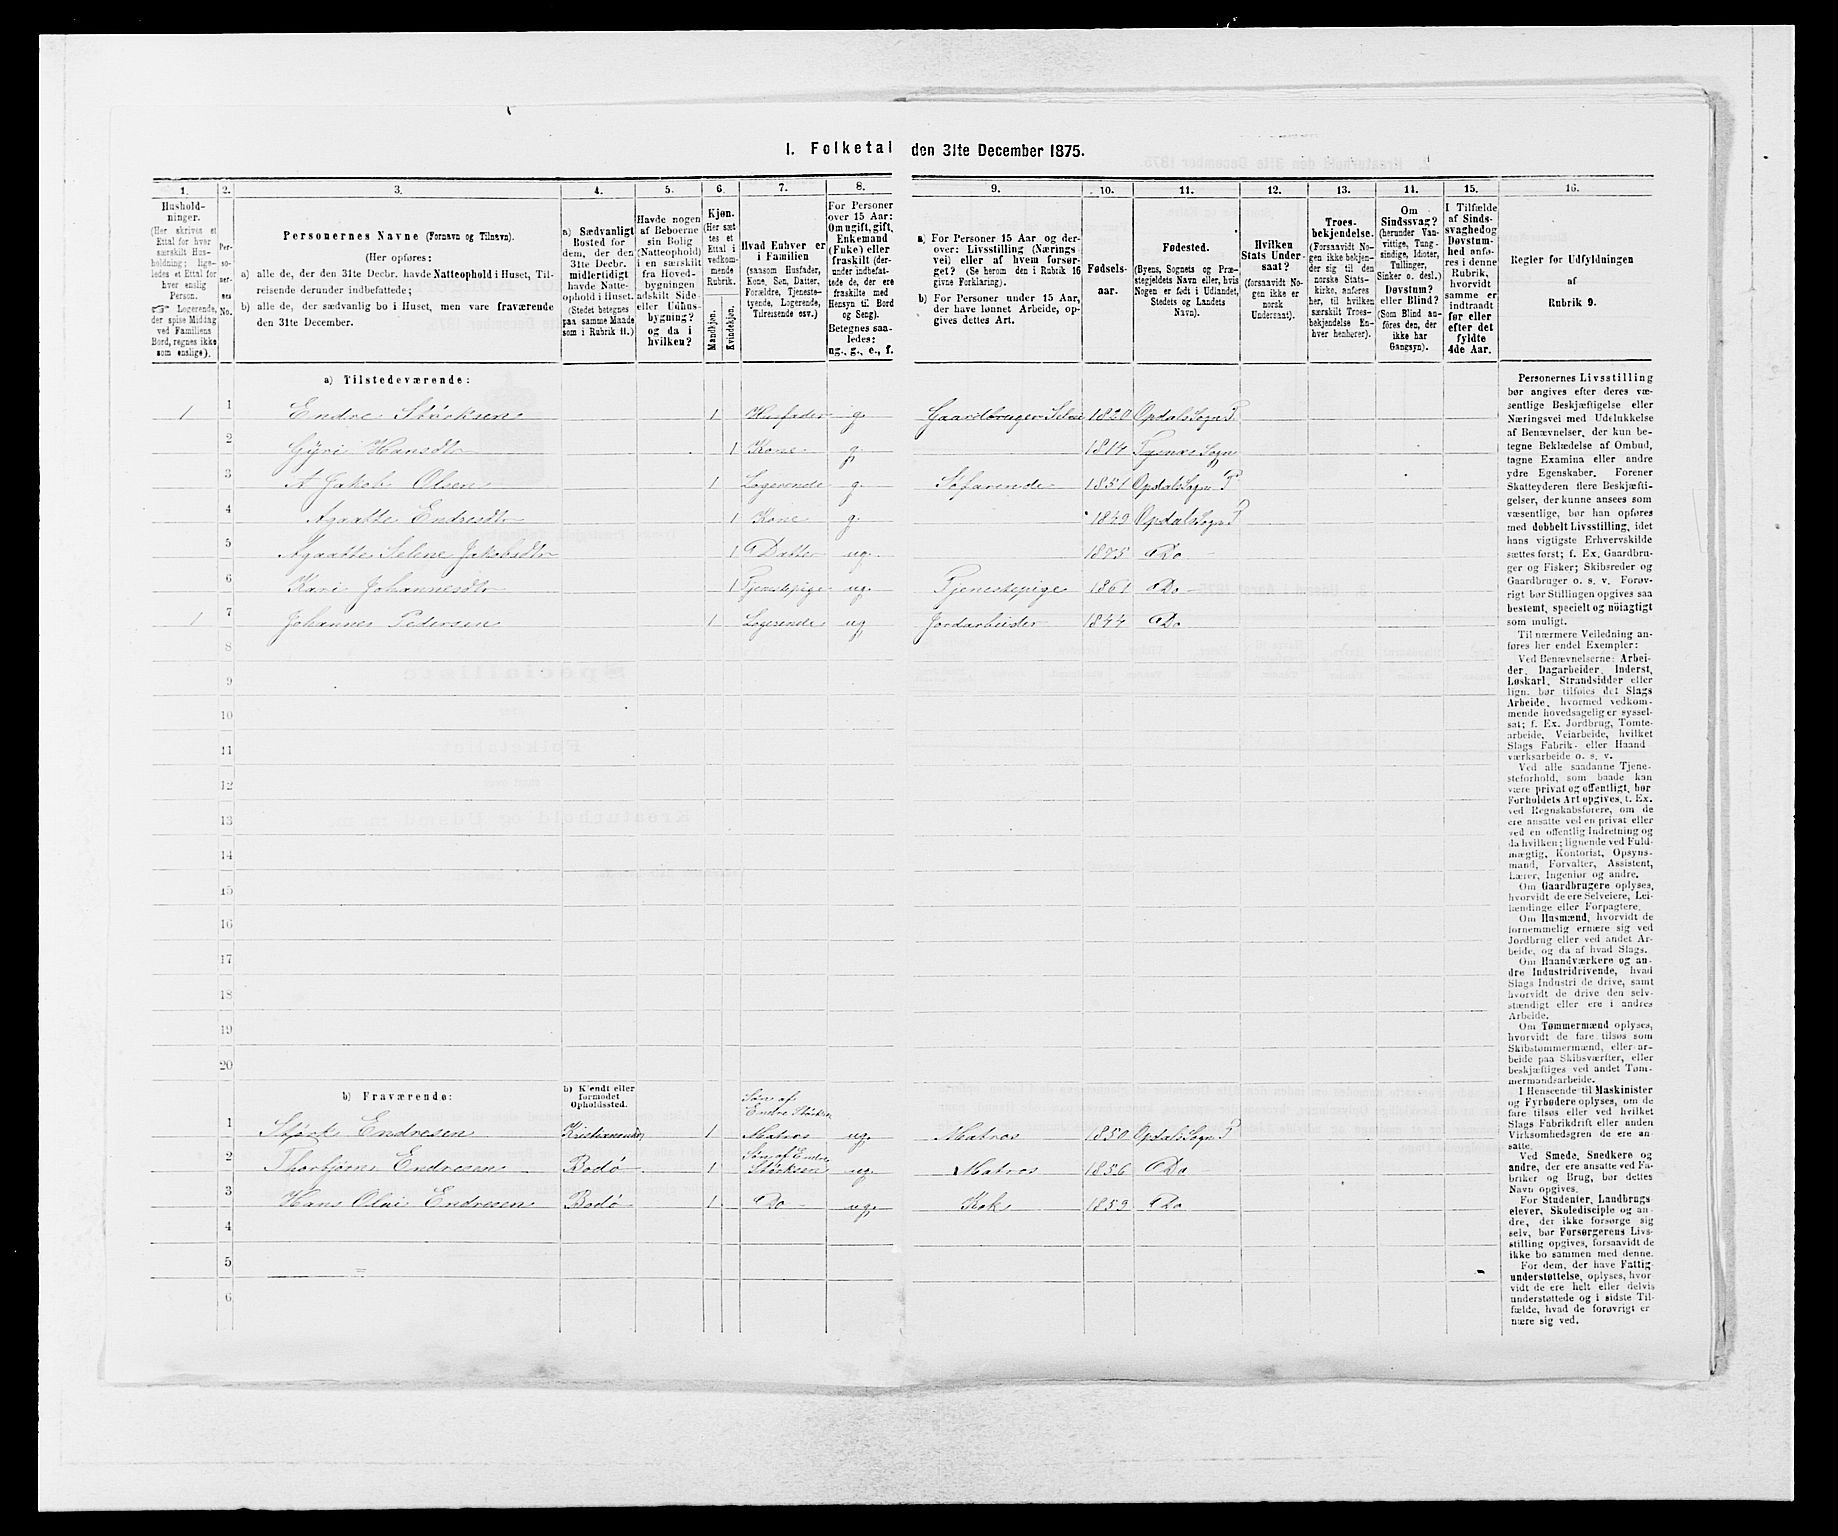 1. Folketal den 31te December 1875.
1. 2. 3. 4. 5. 6. 7. 8. 9. 10. 11. 12. 13. 14. 15. 16.
Hushold-
ninger.
(Her skrives et
Ettal for hver
særskilt Hus-
holdning; lige-
ledes et Ettal for
hver enslig
Person.
☞ Logerende,
der spise Middag
ved Familiens
Bord, regnes ikke
som enslige).
Per-
so-
ner-
nes
No.
Personernes Navne (Fornavn og Tilnavn).
(Her opføres:
a) alle de, der den 31te Decbr. havde Natteophold i Huset, Til-
reisende derunder indbefattede;
b) alle de, der sædvanlig bo i Huset, men vare fraværende
den 31te December.
a) Sædvanligt
Bosted for
dem, der den
31te Decbr.
midlertidigt
havde Natte-
ophold i Huset.
(Stedet betegnes
paa samme Maade
som i Rubrik 11.)
Havde nogen
af Beboerne
sin Bolig
(Natteophold)
i en særskilt
fra Hoved-
bygningen
adskilt Side-
eller Udhus-
bygning?
og da i
hvilken?
Kjøn.
(Her sæt
tes et
Ettal i
vedkom-
mende
Rubrik.
Mandkjøn.
Kvindekjøn.
Hvad Enhver er
i Familien
(saasom Husfader,
Kone, Søn, Datter,
Forældre, Tjeneste-
tyende, Logerende,
Tilreisende osv.)
For Personer
over 15 Aar:
Om ugift, gift,
Enkemand
(Enke) eller
fraskilt (der-
under indbefat-
tede de, der ere
fraskilte med
Hensyn til Bord
og Seng).
Betegnes saa-
ledes:
ug., g., e., f.
a) For Personer 15 Aar og der-
over: Livsstilling (Nærings
vei) eller af hvem forsør-
get? (Se herom den i Rubrik 16
givne Forklaring).
b) For Personer under 15 Aar,
der have lønnet Arbeide, op-
gives dettes Art.
Fødsels-
aar.
Fødested.
(Byens, Sognets og Præ-
stegjeldets Navn eller, hvis
Nogen er født i Udlandet,
Stedets og Landets
Navn).
Hvilken
Stats Under-
saat?
(forsaavidt No-
gen ikke er
norsk
Undersaat).
Troes-
bekjendelse.
(Forsaavidt No-
gen ikke bekjen-
der sig til den
norske Stats-
kirke, anføres
her, til hvilken
særskilt Troes-
bekjendelse En-
hver henhører).
Om
Sindssvag?
(herunder Van-
vittige, Tung-
sindige, Idioter,
Tullinger,
Sinker o. desl.)
Døvstum?
eller Blind?
(Som Blind an-
føres den, der
ikke har
Gangsyn).
I Tilfælde
af Sinds-
svaghed og
Døvstum-
hed anfø-
res i denne
Rubrik,
hvorvidt
samme er
indtraadt
før eller
efter det
fyldte
4de Aar.
Regler for Udfyldningen
af
Rubrik 9.
a) Tilstedeværende:
1 1 Endre Størksen 1 Husfader g. Gaardbruger Selveier 1820 Opdals Sogn P
2 Gÿri Hansdtr 1 Kone g. 1814 Tysnæs Sogn
3 A Jakob Olsen 1 Logerende g. Søfarende 1851 Opdals Sogn P
4 Agaatte Endresdtr 1 Kone g. 1849 Opdals Sogn P
5 Agaatte Selene Jakobsdtr 1 Datter ug. 1875 Do
6 Kari Johannesdtr 1 Tjenestepige ug. Tjenestepige 1861 Do
1 7 Johannes Pedersen 1 Logerende ug Jordarbeider 1844 Do
8
9
10
11
12
13
14
15
16
17
18
19
20
b) Fraværende:
b) Kjendt eller
formodet
Opholdssted.
Søn af
Endre Størksen
1 Størk Endresen Kristiansund 1 Matros ug. Matros 1850 Opdals Sogn P
Søn af Endre
2 Thorbjørn Endresen Bodø 1 Størksen ug. Matros 1856 Do
3 Hans Olai Endresen Bodø 1 Do ug. Kok 1859 Do
4
5
6
Personernes Livsstilling
bør angives efter deres væ-
sentlige Beskjæftigelse eller
Næringsvei med Udelukkelse
af Benævnelser, der kun be-
tegne Beklædelse af Ombud,
tagne Examina eller andre
ydre Egenskaber. Forener
Skatteyderen flere Beskjæfti-
gelser, der kunne ansees som
væsentlige, bør han opføres
med dobbelt Livsstilling, idet
hans vigtigste Erhvervskilde
sættes først; f. Ex. Gaardbru-
ger og Fisker; Skibsreder og
Gaardbruger o. s. v. Forøv-
rigt bør Stillingen opgives saa
bestemt, specielt og nøiagtigt
som muligt.
Til nærmere Veiledning an-
føres her endel Exempler:
Ved Benævnelserne: Arbei-
der, Dagarbeider, Inderst,
Løskarl, Strandsidder eller
lign. bør tilføies det Slags
Arbeide, hvormed vedkom-
mende hovedsagelig er syssel-
sat; f. Ex. Jordbrug, Tomte-
arbeide, Veiarbeide, hvilket
Slags Fabrik- eller Haand
værksarbeide o. s. v.
Ved alle saadanne Tjene-
steforhold, som baade kan
være privat og offentligt, bør
Forholdets Art opgives, t. Ex.
ved Regnskabsførere, om de
ere ansatte ved en privat eller
ved en offentlig Indretning og
da hvilken; lignende ved Fuld-
mægtig, Kontorist, Opsyns-
mand, Forvalter, Assistent,
Lærer, Ingeniør og andre.
Om Gaardbrugere oplyses,
hvorvidt de ere Selveiere, Lei-
lændinge eller Forpagtere.
Om Husmænd, hvorvidt de
fornemmelig ernære sig ved
Jordbrug eller ved andet Ar-
beide, og da af hvad Slags.
Om Haandværkere og an-
dre Industridrivende, hvad
Slags Industri de drive, samt
hvorvidt de drive den selv-
stændigt eller ere i andres
Arbeide.
Om Tømmermænd oplyses,
hvorvidt de fare tilsøs som
Skibstømmermænd, eller ar-
beide paa Skibsværfter, eller
beskjæftiges ved andet Tøm-
mermandsarbeide.
I Henseende til Maskinister
og Fyrbødere oplyses, om de
fare tilsøs eller ved hvilket
Slags Fabrikdrift eller anden
Virksomhedsgren de ere an-
satte.
Ved Smede, Snedkere og
andre, der ere ansatte ved Fa-
briker og Brug, bør dettes
Navn opgives.
For Studenter, Landbrugs
elever, Skoledisciple og an-
dre, der ikke forsørge sig
selv, bør Forsørgerens Livs-
stilling opgives, forsaavidt de
ikke bo sammen med denne.
For dem, der have Fattig-
understøttelse, oplyses, hvor-
vidt de ere helt eller delvis
understøttede og i sidste Til-
fælde, hvad de forøvrigt er
nære sig ved.